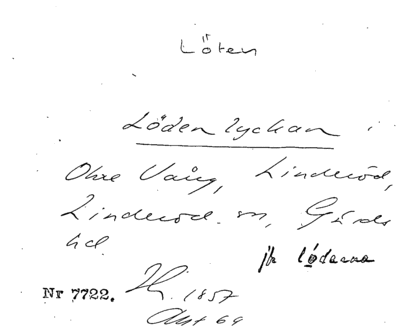 Löten
Lödenlyckan
Ohre Vång, Linderöd,
Linderöd sn, Gärds
hd
jfr lödarna
Nr 7722. 1857
Akt 69